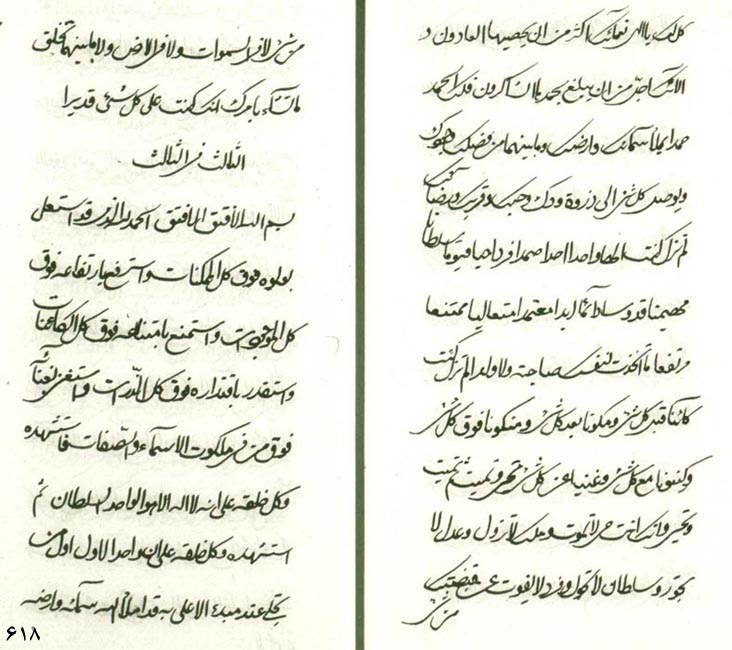 كل لك يا الهي نعمائك اكثر من ان يحصيها العادون و
الائك اجل من ان يبلغ بحمدها الشاكرون فلك الحمد
حمدا يملأ سمائك وارضك وما بينهما من فضلك وجودك
ويوصل كل شئ الى ذروة ودك وحبك وقربك ورضائك
لم تزل كنت الها واحدا احدا صمدا فردا حيا قيوما سلطانا
مهيمنا قدوسا دائما ابدا معتمدا متعاليا ممتنعا
مرتفعا ما اتخذت لنفسك صاحبة ولا ولدا لم تزل كنت
كائنا قبل كل شئ ومكونا بعد كل شئ ومتكونا فوق كل شئ
وكينونا مع كل شئ وغنيا عن كل شئ تحيى وتميت ثم تميت
وتحيى وانك انت حي لا تموت وملك لا تزول وعدل لا
تجور وسلطان لا تحول وفرد لا يفوت عن قبضتك
من شئ
من شئ لا في السموات ولا في الارض ولا ما بينهما تخلق
ما تشاء بامرك انك كنت على كل شئ قديرا
الثالث في الثالث
بسم الله الافتق الافتق الحمد لله الذي قد استعلى
بعلوه فوق كل الممكنات واسترفع بارتفاعه فوق
كل الموجودات واستمنع بامتناعه فوق كل الكائنات
واستقدر باقتداره فوق كل الذرات
فوق من في ملكوت الاسماء والصفات فاستشهده
وكل خلقه على انه لا اله الا هو الواحد السلطان ثم
استشهده وكل خلقه على ان واحد الاول اول من
تجلى عند مبدء الاعلى به قد املأ الله سمائه وارضه
۶۱۸